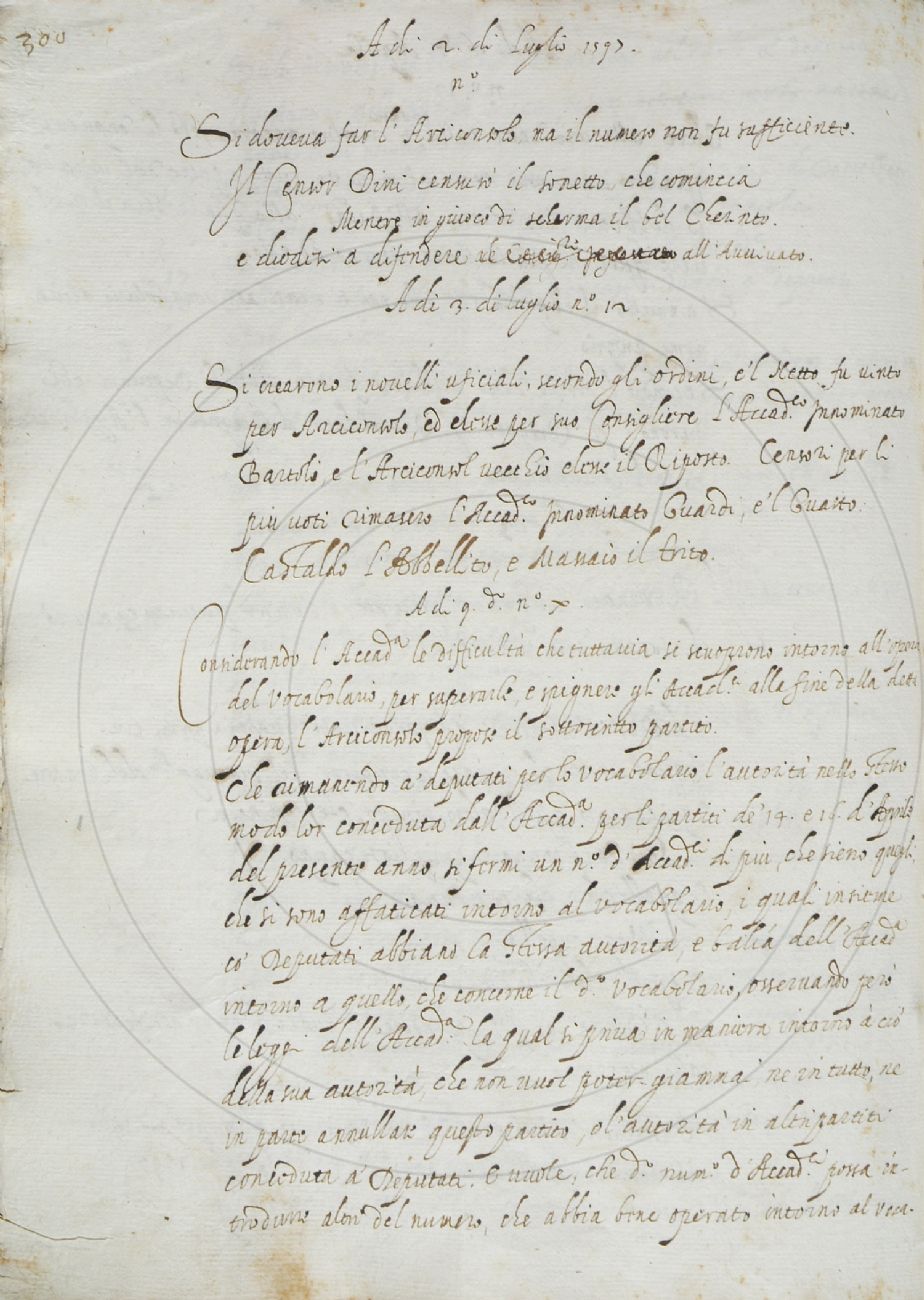 300
A di 2. di Luglio 1597.
n.º
Si doveva far l'Arciconsolo, ma il numero non fu sufficiente.
Il Censor Dini censurò il sonetto, che comincia
Mentre in giuoco di scherma il bel Cherinto.
e diedesi a difendere all'Avvivato.
A di 3. di luglio n.º 12
Si crearono i novelli uficiali, secondo gli ordini, e'l Netto fu vinto
per Arciconsolo, ed elesse per suo Consigliere l'Accad.co Innominato
Bartoli, e l'Arciconsol vecchio elesse il Riposto. Censori per li
più voti rimasero l'Accad.co Innominato Guardi, e'l Guasto.
Castaldo l'Abbellito, e Massaio il Trito.
A di 9. d.º n.º x.
Considerando l'Accad.a le difficultà che tuttavia si scuoprono intorno all'opera
del vocabolario, per superarle, e spignere gli Accad.ci alla fine della detta
opera, l'Arciconsolo propose il sottoscritto partito.
Che rimanendo a' deputati per lo vocabolario l'autorità nello stesso
modo lor conceduta dall'Accad.a per li partiti de' 14. e 16. d'Aprile
del presente anno, si fermi un n.º d'Accad.ci di più, che sieno quegli,
che si sono affaticati intorno al vocabolario, i quali insieme
co' Deputati abbiano la stessa autorità, e balìa dell'Accad.a
intorno a quello, che concerne il d.º vocabolario, osservando però
le leggi dell'Accad.a la qual si priva in maniera intorno à ciò
della sua autorità, che non vuol poter giammai ne in tutto, ne
in parte annullare questo partito, o l'autorità in altri partiti
conceduta a' Deputati. E vuole, che d.º num.º d'Accad.ci possa in-
trodurre del numero, che abbia bene operato intorno al voca-